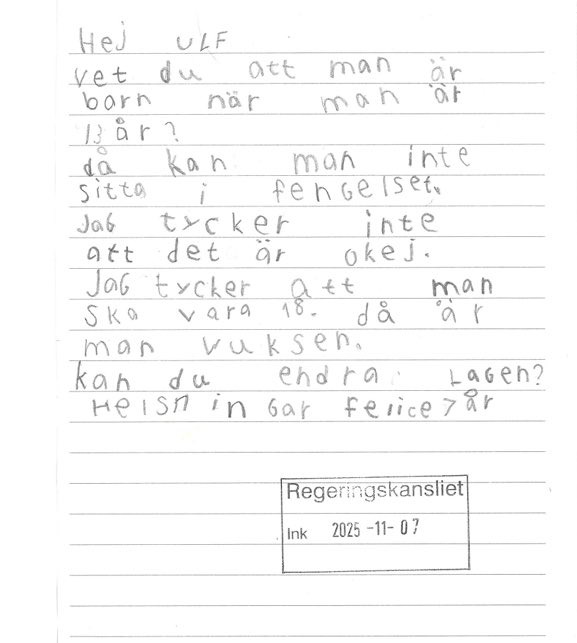 Hej ULF
vet du att man är
barn när man är
13 år?
då kan man inte
sitta i fengelset.
Jag tycker inte
att det är okej.
Jag tycker att man
ska vara 18. då är
man vuksen.
kan du endra Lagen?
Helsningar felice 7 år
Regeringskansliet
Ink 2025-11-07